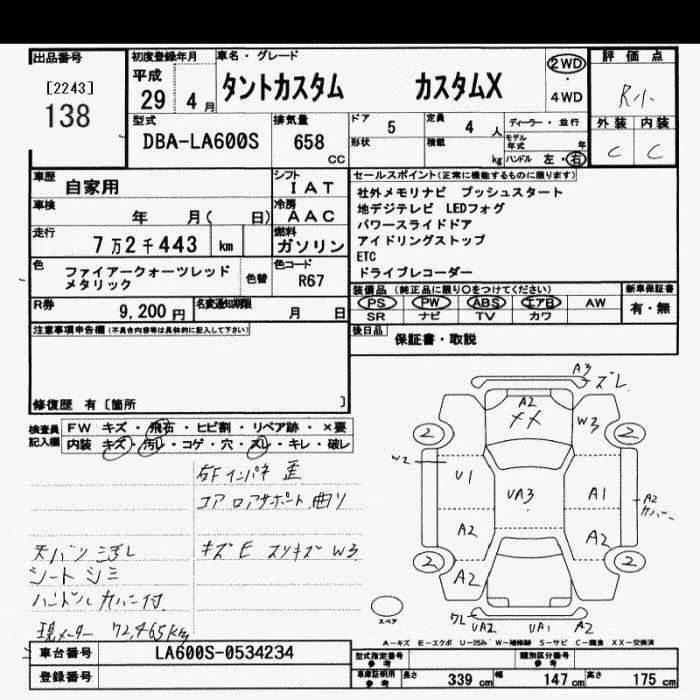 出品番号
[2243]
138
初度登録年月
平成
29 4月
車名・グレード
タントカスタム カスタムX
2WD
・
4WD
評価点
R小
外装 内装
C C
型式
DBA-LA600S
排気量
658
CC
ドア
5
定員
4 人
形状
積載
kg
ディーラー・並行
モデル年式 年
ハンドル 左・右
車歴
自家用
シフト
IAT
車検
年 月( 日)
冷房
AAC
走行
7万2千443 km
燃料
ガソリン
色
ファイアークォーツレッド
メタリック
色替
色コード
R67
R券
9,200円
名変通知期限
月 日
セールスポイント(正常に機能するものに限ります)
社外メモリナビ プッシュスタート
地デジテレビ LEDフォグ
パワースライドドア
アイドリングストップ
ETC
ドライブレコーダー
装備品(純正品に限り○をつけてください)
PS PW ABS エアB AW
SR ナビ TV カワ
新車保証書
有・無
後日品
保証書・取説
注意事項申告欄(不具合内容等は具体的に記入して下さい)
修復歴 有〔箇所 〕
検査員
記入欄
FW キズ・飛石・ヒビ割・リペア跡・×要
内装 キズ・汚レ・コゲ・穴・スレ・キレ・破レ
右Fインパネ 歪
コアロアサポート 曲リ
天バリ 汚レ
キズE スリキズ W3
シート シミ
ハンドルカバー付
現メーター 72,465km
A3
ズレ
A2
XX
W3
2 2
W2
U1
UA3
A1
A2
カバー
A2
A2
2 2
A2
スペア
ワレ
UA2
UA1
A2
A-キズ E-エクボ U-凹ミ W-補修跡 S-サビ C-腐食 XX-交換済
車台番号
LA600S-0534234
登録番号
型式指定番号
参考
類別区分番号
参考
車庫証明用
参考
長さ
339 cm
幅
147 cm
高さ
175 cm